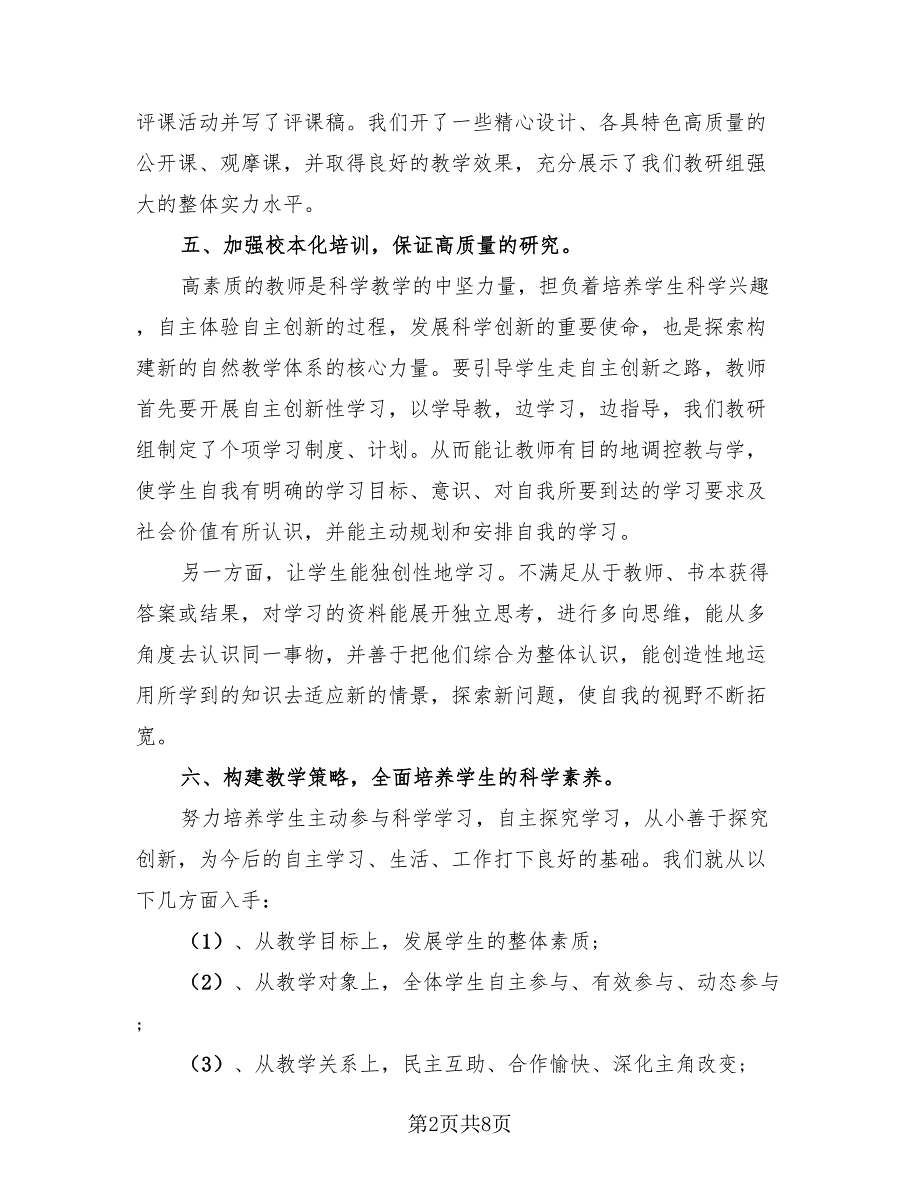 评课活动并写了评课稿。我们开了一些精心设计、各具特色高质量的
公开课、观摩课，并取得良好的教学效果，充分展示了我们教研组强
大的整体实力水平。
五、加强校本化培训，保证高质量的研究。
高素质的教师是科学教学的中坚力量，担负着培养学生科学兴趣
，自主体验自主创新的过程，发展科学创新的重要使命，也是探索构
建新的自然教学体系的核心力量。要引导学生走自主创新之路，教师
首先要开展自主创新性学习，以学导教，边学习，边指导，我们教研
组制定了个项学习制度、计划。从而能让教师有目的地调控教与学，
使学生自我有明确的学习目标、意识、对自我所要到达的学习要求及
社会价值有所认识，并能主动规划和安排自我的学习。
另一方面，让学生能独创性地学习。不满足从于教师、书本获得
答案或结果，对学习的资料能展开独立思考，进行多向思维，能从多
角度去认识同一事物，并善于把他们综合为整体认识，能创造性地运
用所学到的知识去适应新的情景，探索新问题，使自我的视野不断拓
宽。
六、构建教学策略，全面培养学生的科学素养。
努力培养学生主动参与科学学习，自主探究学习，从小善于探究
创新，为今后的自主学习、生活、工作打下良好的基础。我们就从以
下几方面入手：
（1）、从教学目标上，发展学生的整体素质；
（2）、从教学对象上，全体学生自主参与、有效参与、动态参与
；
（3）、从教学关系上，民主互助、合作愉快、深化主角改变；
第2页共8页